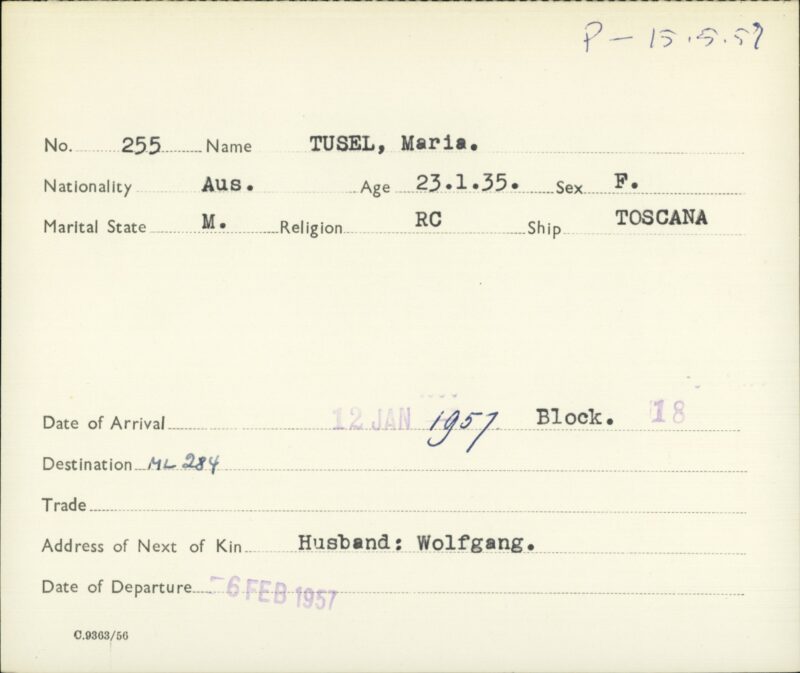 P - 15.5.57
No. 255 Name TUSEL, Maria.
Nationality Aus. Age 23.1.35. Sex F.
Marital State M. Religion RC Ship TOSCANA
Date of Arrival 12 JAN 1957 Block. 18
Destination ML 284
Trade
Address of Next of Kin Husband: Wolfgang.
Date of Departure -6 FEB 1957
C.9363/56